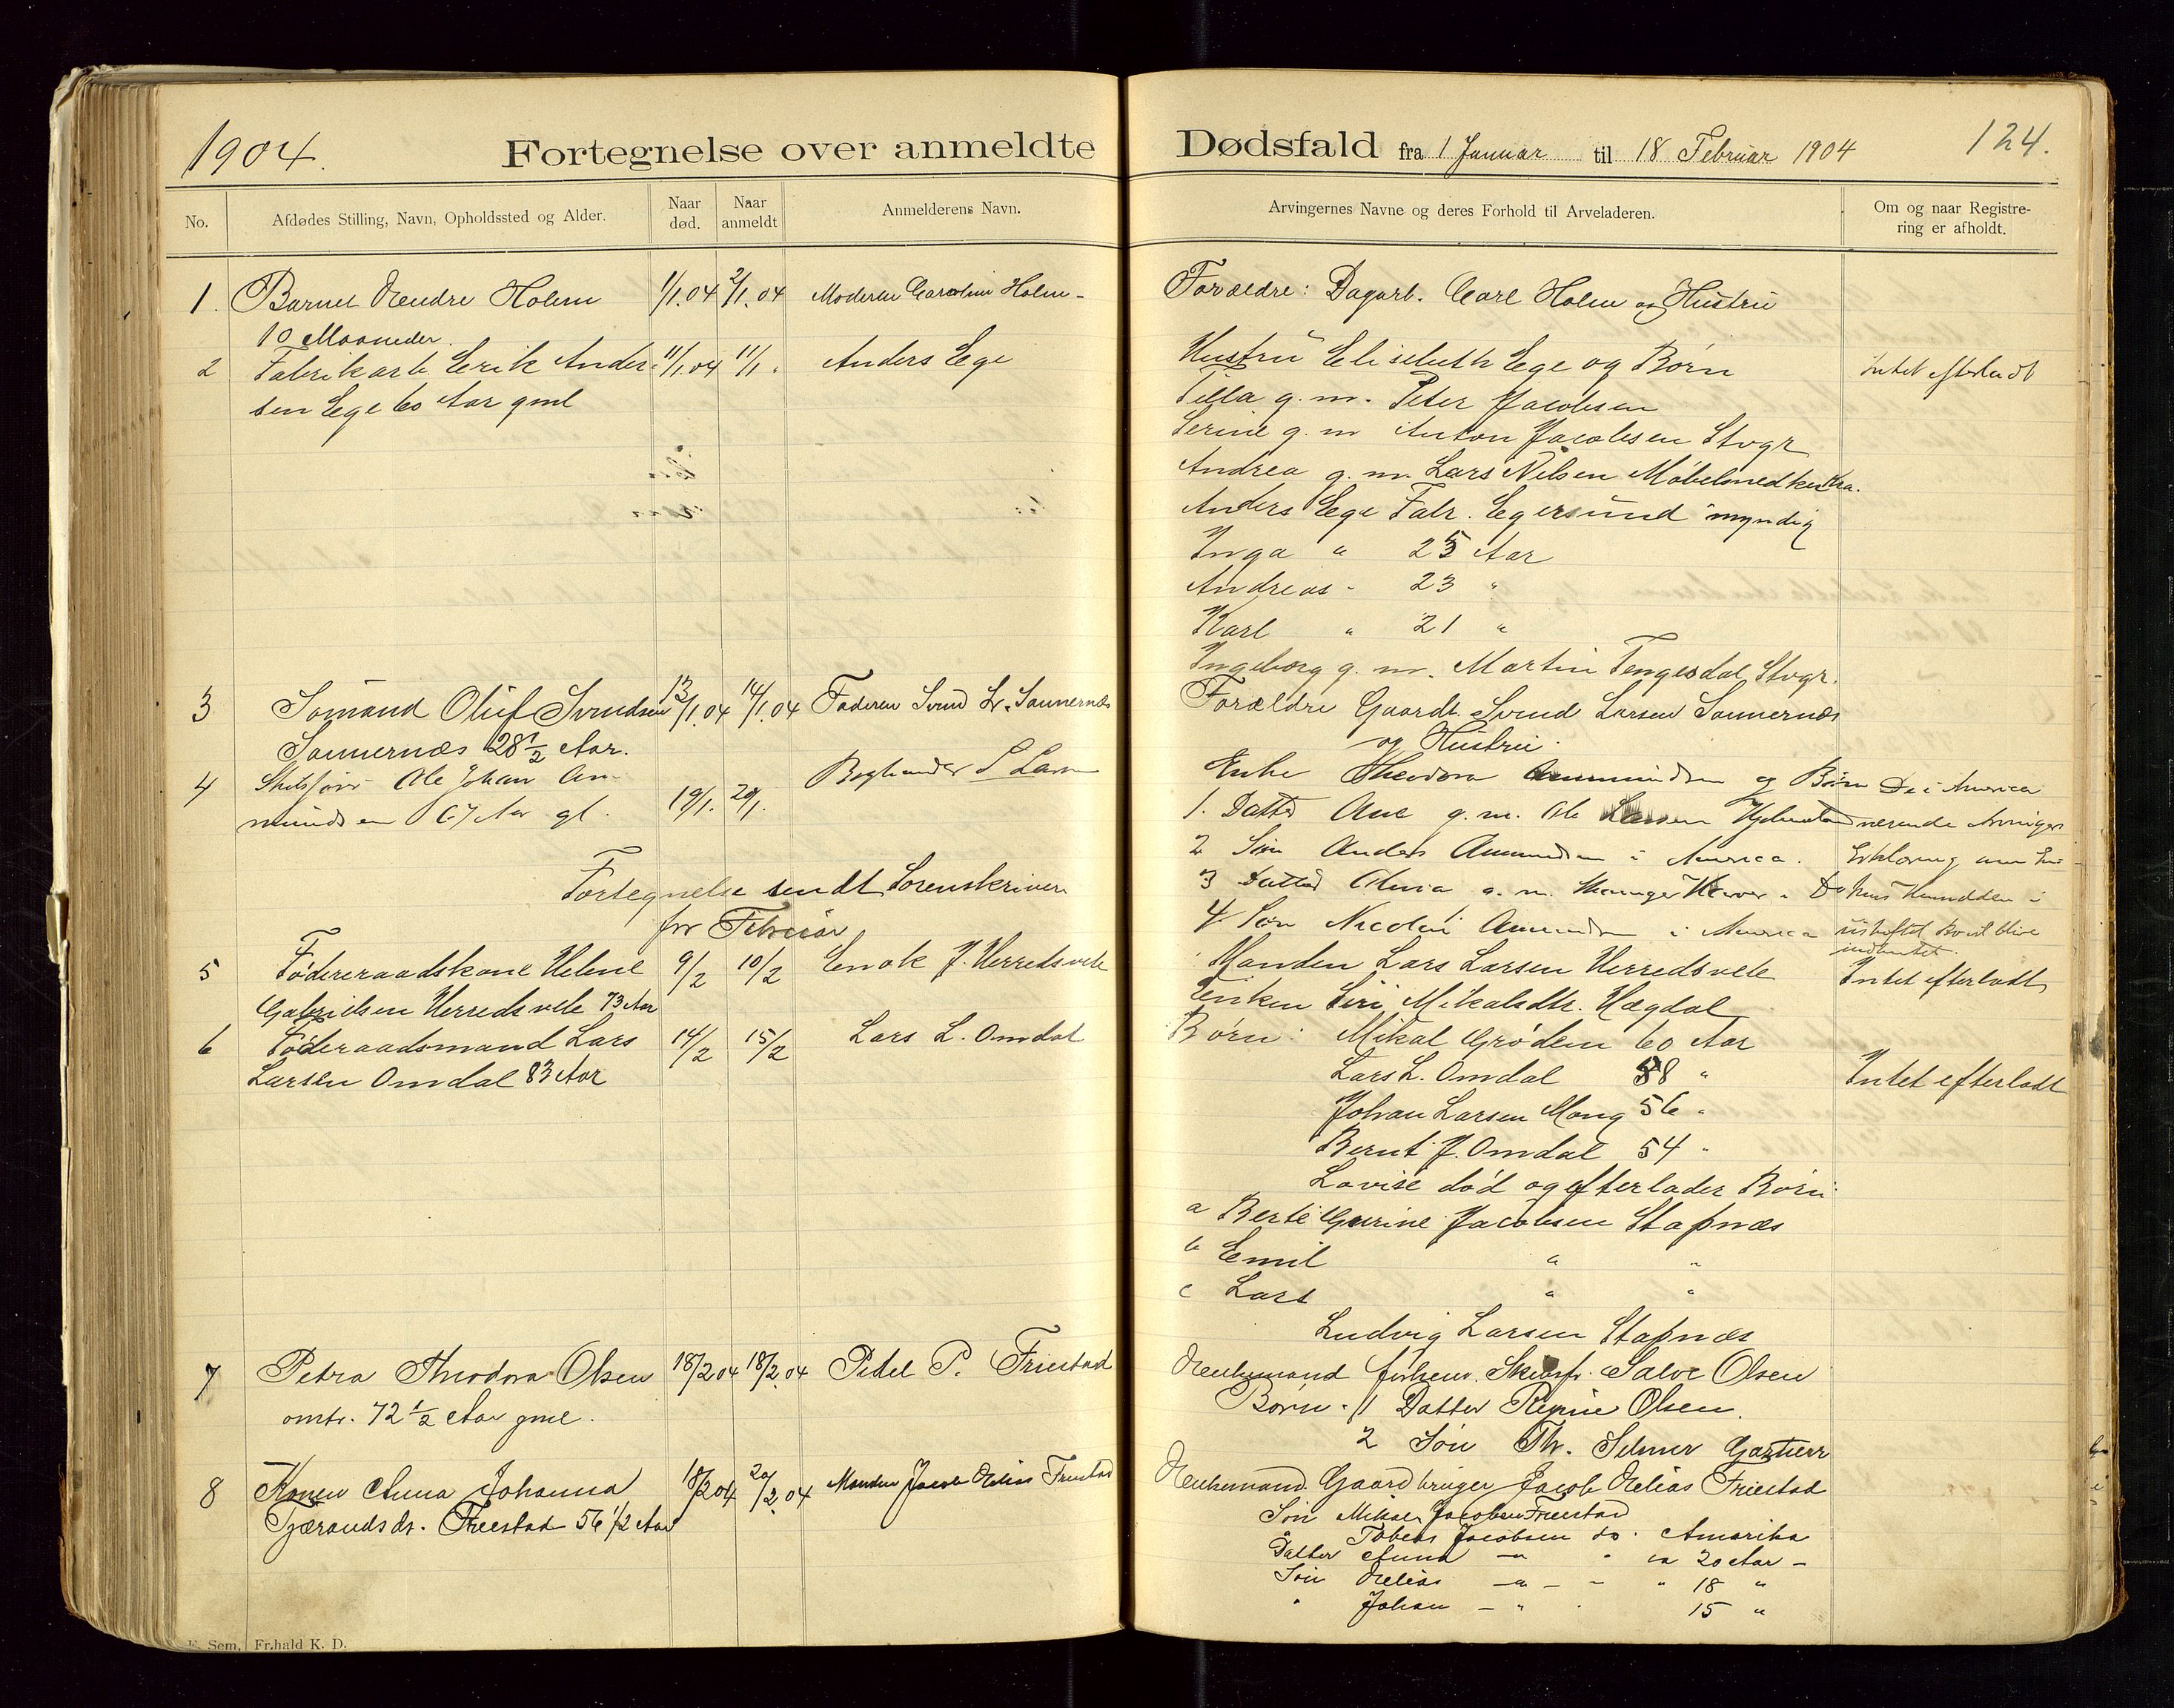 1904.
Fortegnelse over anmeldte
No.
Afdødes Stilling, Navn, Opholdssted og Alder.
Naar død.
Naar anmeldt
Anmelderens Navn.
1. Barnet Hendre Holm 1/1.04 2/1.04 Moderen Caroline Holm -
10 Maaneder.
2 Fabrikarb. Erik Ander- 11/1.04 11/1. Anders Ege
sen Ege 60 Aar gml
3 Sømand Oluf Svendsen 13/1.04 14/1.04 Faderen Svend L. Sannernæs
Sannernæs 28 1/2 Aar.
4 Skibsfør Ole Johan Am- 19/1. 20/1. Boghandler
mundsen 67 Aar gl.
Fortegnelse sendt Sorenskriver
for Februar
5 Føderaadskone Helene 9/2 10/2 Enok J. Herredsvele
Gabrielsen Herredsvele 73 Aar
6 Føderaadsmand Lars 14/2 15/2 Lars L. Omdal
Larsen Omdal 83 Aar
7 Petra Theodora Olsen 18/2 04 18/2.04 Peder P. Friestad
omtr. 72 1/2 Aar gml.
8 Konen Anna Johanna 18/2 04 20/2.04 Manden Jacob Helias Friestad
Tjærandsdr. Friestad 56 1/2 Aar
F. Sem, Fr.hald K. D.
Dødsfald fra 1 Januar til 18 Februar 1904
124.
Arvingernes Navne og deres Forhold til Arveladeren.
Om og naar Registre-
ring er afholdt.
Forældre: Dagarb. Carl Holm og Hustru
Hustru Elisebeth Ege og Børn Intet efterladt
Tilla g. m. Peter Jacobsen
Serine g. m Anton Jacobsen Stvgr
Andrea g. m. Lars Nilsen Møbelsnedker Kra.
Anders Ege Fabr. Egersund myndig
Inga " 25 Aar
Andreas - 23 "
Karl " 21 "
Ingeborg g. m. Martin Tengesdal, Stvgr.
Forældre Gaardb. Svend Larsen Sannernæs
og Hustru.
Enke Theodora Ammundsen og Børn De i America
1. Datter Ane g. m. Ole værende Arvinger
2 Søn Anders Ammundsen i America. Erklæring om
3 Datter g. m.
4. Søn Nicolai Ammundsen i America uskiftet Bo vil blive
indhentet.
Manden Lars Larsen Herredsvele Intet efterladt
Enken Siri Mikalsdtr. Hægdal
Børn: Mikal Grødem 60 Aar
Lars L. Omdal 58 " Intet efterladt
Johan Larsen Mong 56 "
Bernt J. Omdal 54 "
Lovise død og efterlader Børn:
a Berte Gurine Jacobsen Stapnæs
b Emil " "
c Lars " "
Ludvig Larsen Stapnæs
Enkemand forhenv. Skibsf. Salve Olsen
Børn. 1 Datter Regine Olsen.
2 Søn Th. Selmer
Enkemand Gaardbruger Jacob Helias Friestad
Søn Mikael Jacobsen Friestad
" Tobias Jacobsen do. Amerika
Datter Anna - " - " 20 Aar -
Søn Helias - " - " 18 "
" Johan - " " 15 "